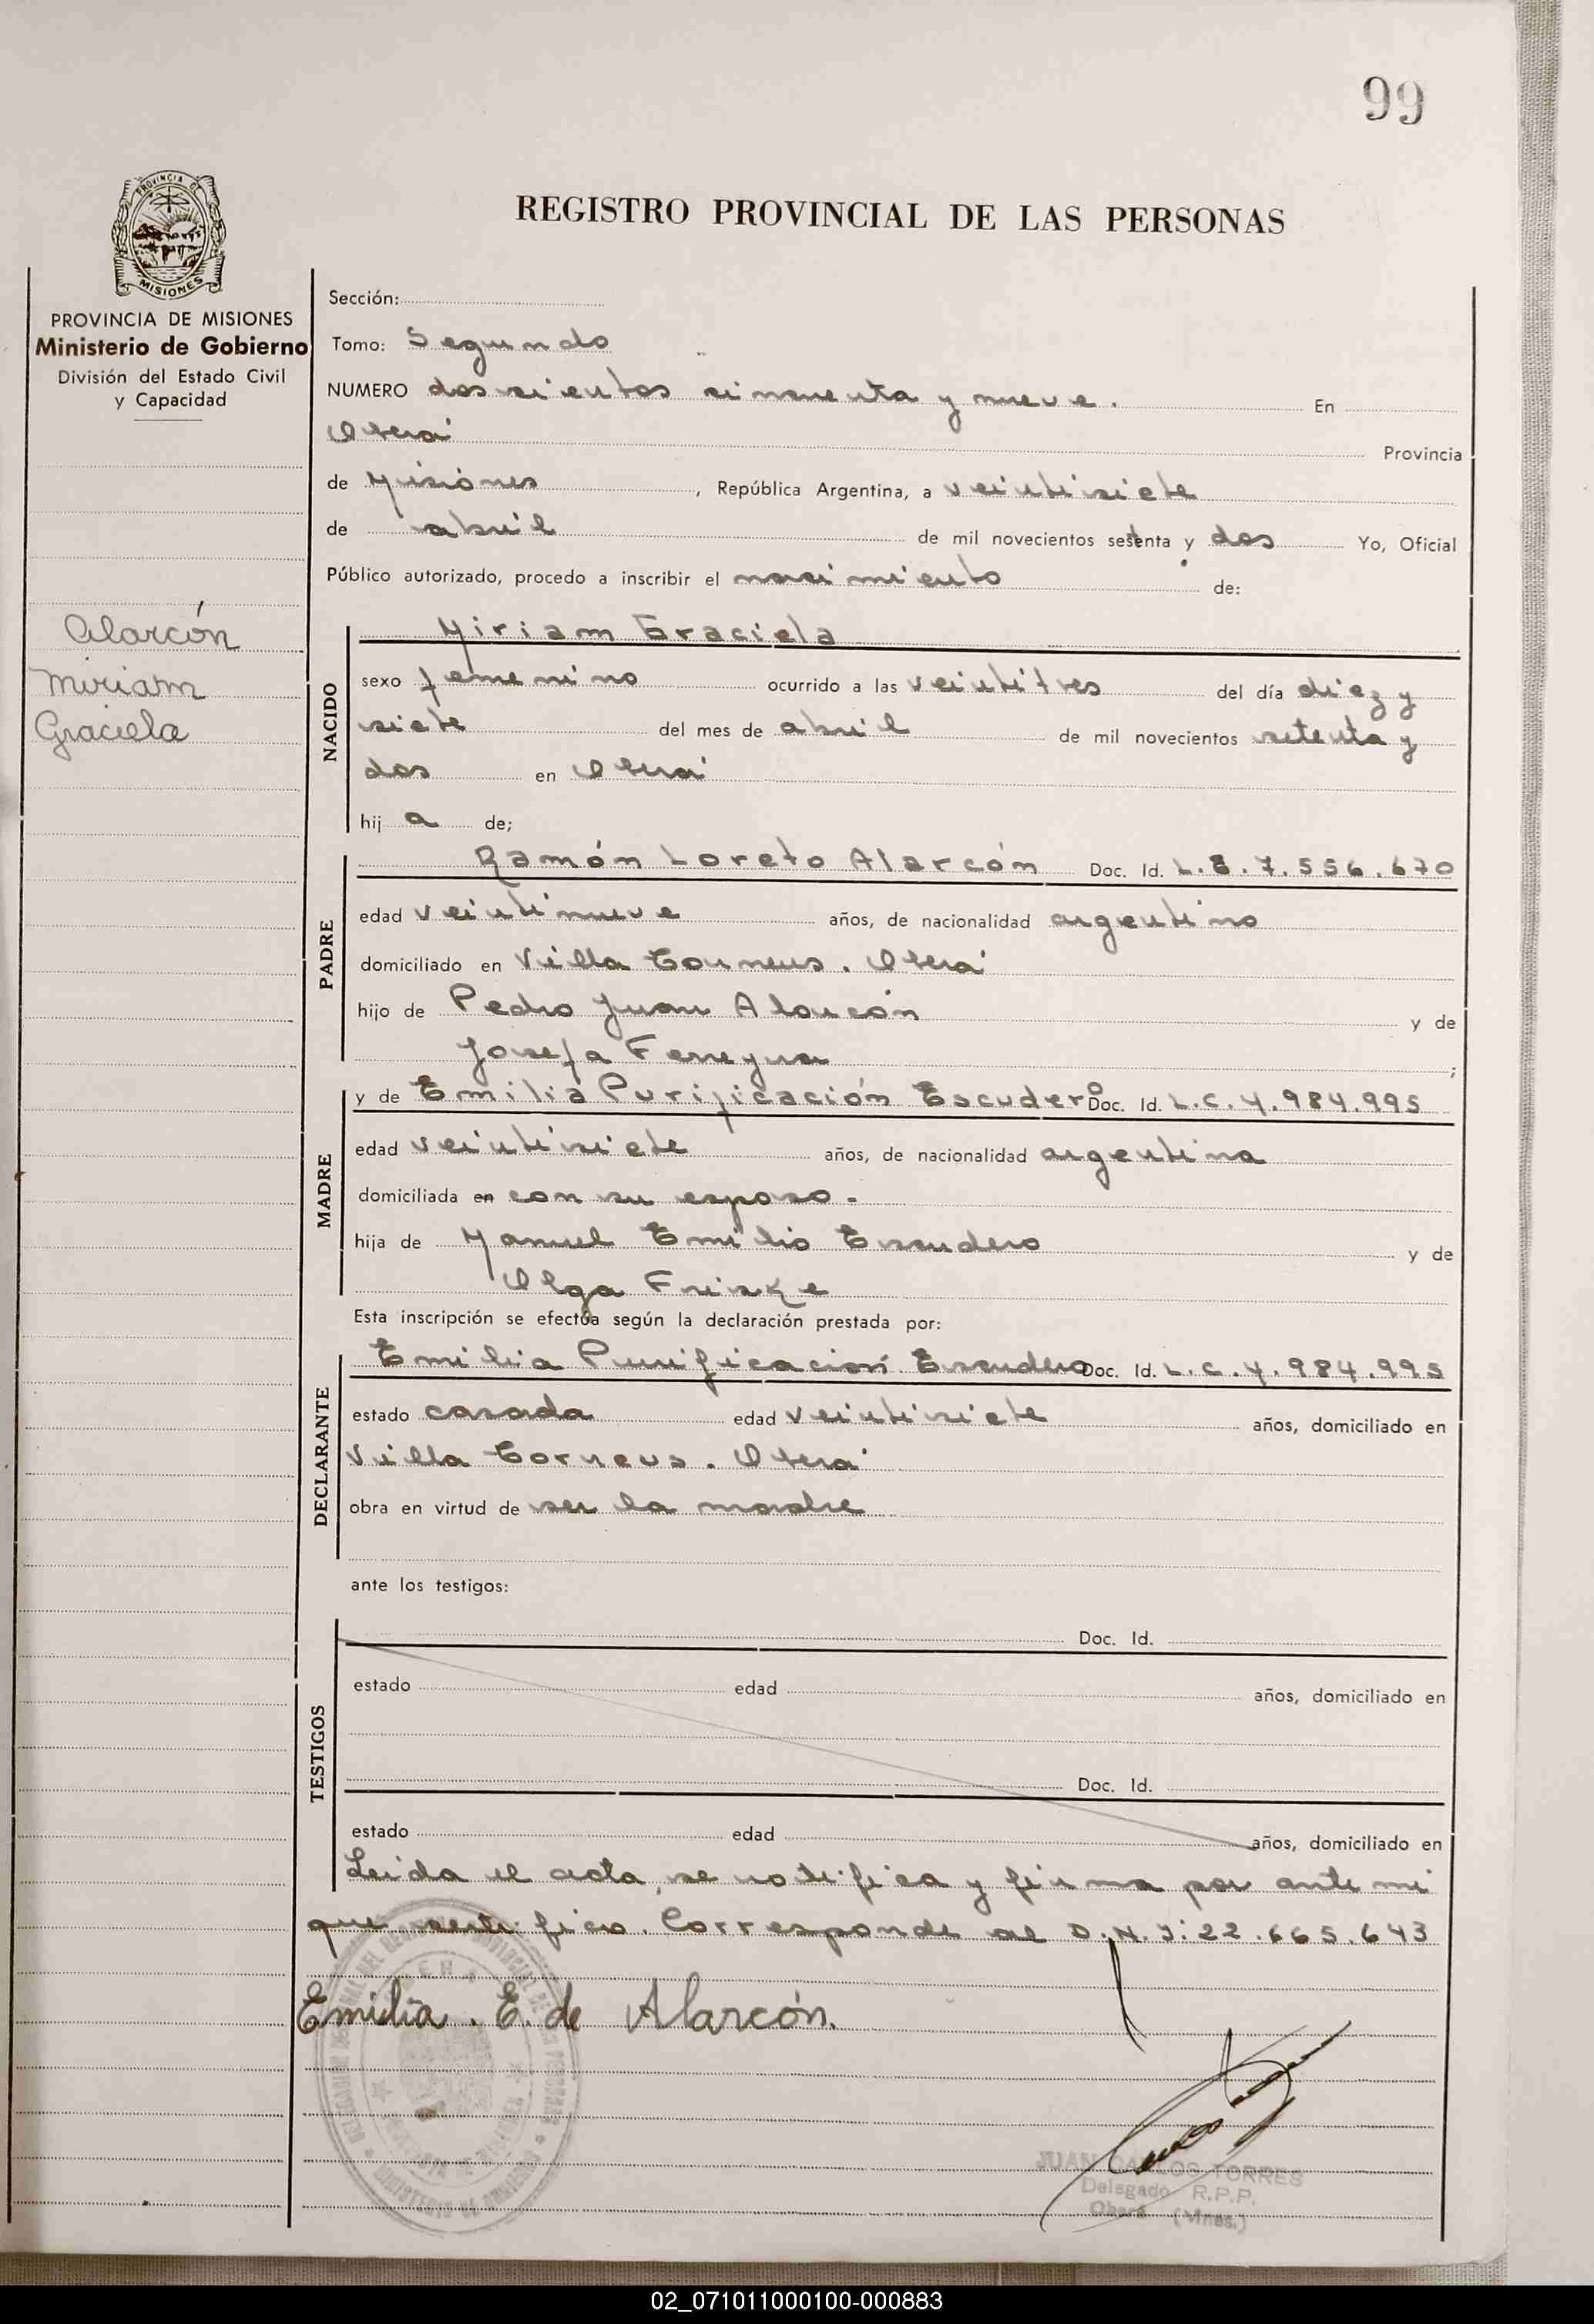 99
PROVINCIA DE
MISIONES
REGISTRO PROVINCIAL DE LAS PERSONAS
PROVINCIA DE MISIONES
Ministerio de Gobierno
División del Estado Civil
y Capacidad
Alarcón
Miriam
Graciela
Sección:
Tomo: Segundo
NUMERO doscientos cincuenta y nueve. En
Oberá Provincia
de Misiónes, República Argentina, a veintisiete
de abril de mil novecientos setenta y dos Yo, Oficial
Público autorizado, procedo a inscribir el nacimiento de:
NACIDO
Miriam Graciela
sexo femenino ocurrido a las veintitres del día diez y
siete del mes de abril de mil novecientos setenta y
dos en Oberá
hij a de;
PADRE
Ramón Loreto Alarcón Doc. Id. L.E. 7.556.670
edad veintinueve años, de nacionalidad argentino
domiciliado en Villa Oberá
hijo de Pedro Juan Alarcón y de
Josefa ;
MADRE
y de Emilia Purificación Escudero Doc. Id. L.C. 4.984.995
edad veintisiete años, de nacionalidad argentina
domiciliada en con su esposo.
hija de Manuel Emilio Escudero y de
Olga
Esta inscripción se efectúa según la declaración prestada por:
DECLARANTE
Emilia Purificación Escudero Doc. Id. L.C. 4.984.995
estado casada edad veintisiete años, domiciliado en
Villa Oberá
obra en virtud de ser la madre
ante los testigos:
TESTIGOS
Doc. Id.
estado edad años, domiciliado en
Doc. Id.
estado edad años, domiciliado en
Leida el acta, se notifica y firma por ante mi
que certifico. Corresponde al D.N.I: 22.665.643
Emilia. E. de Alarcón.
JUAN CARLOS TORRES
Delegado R.P.P.
Oberá (Mnes.)
02_071011000100-000883